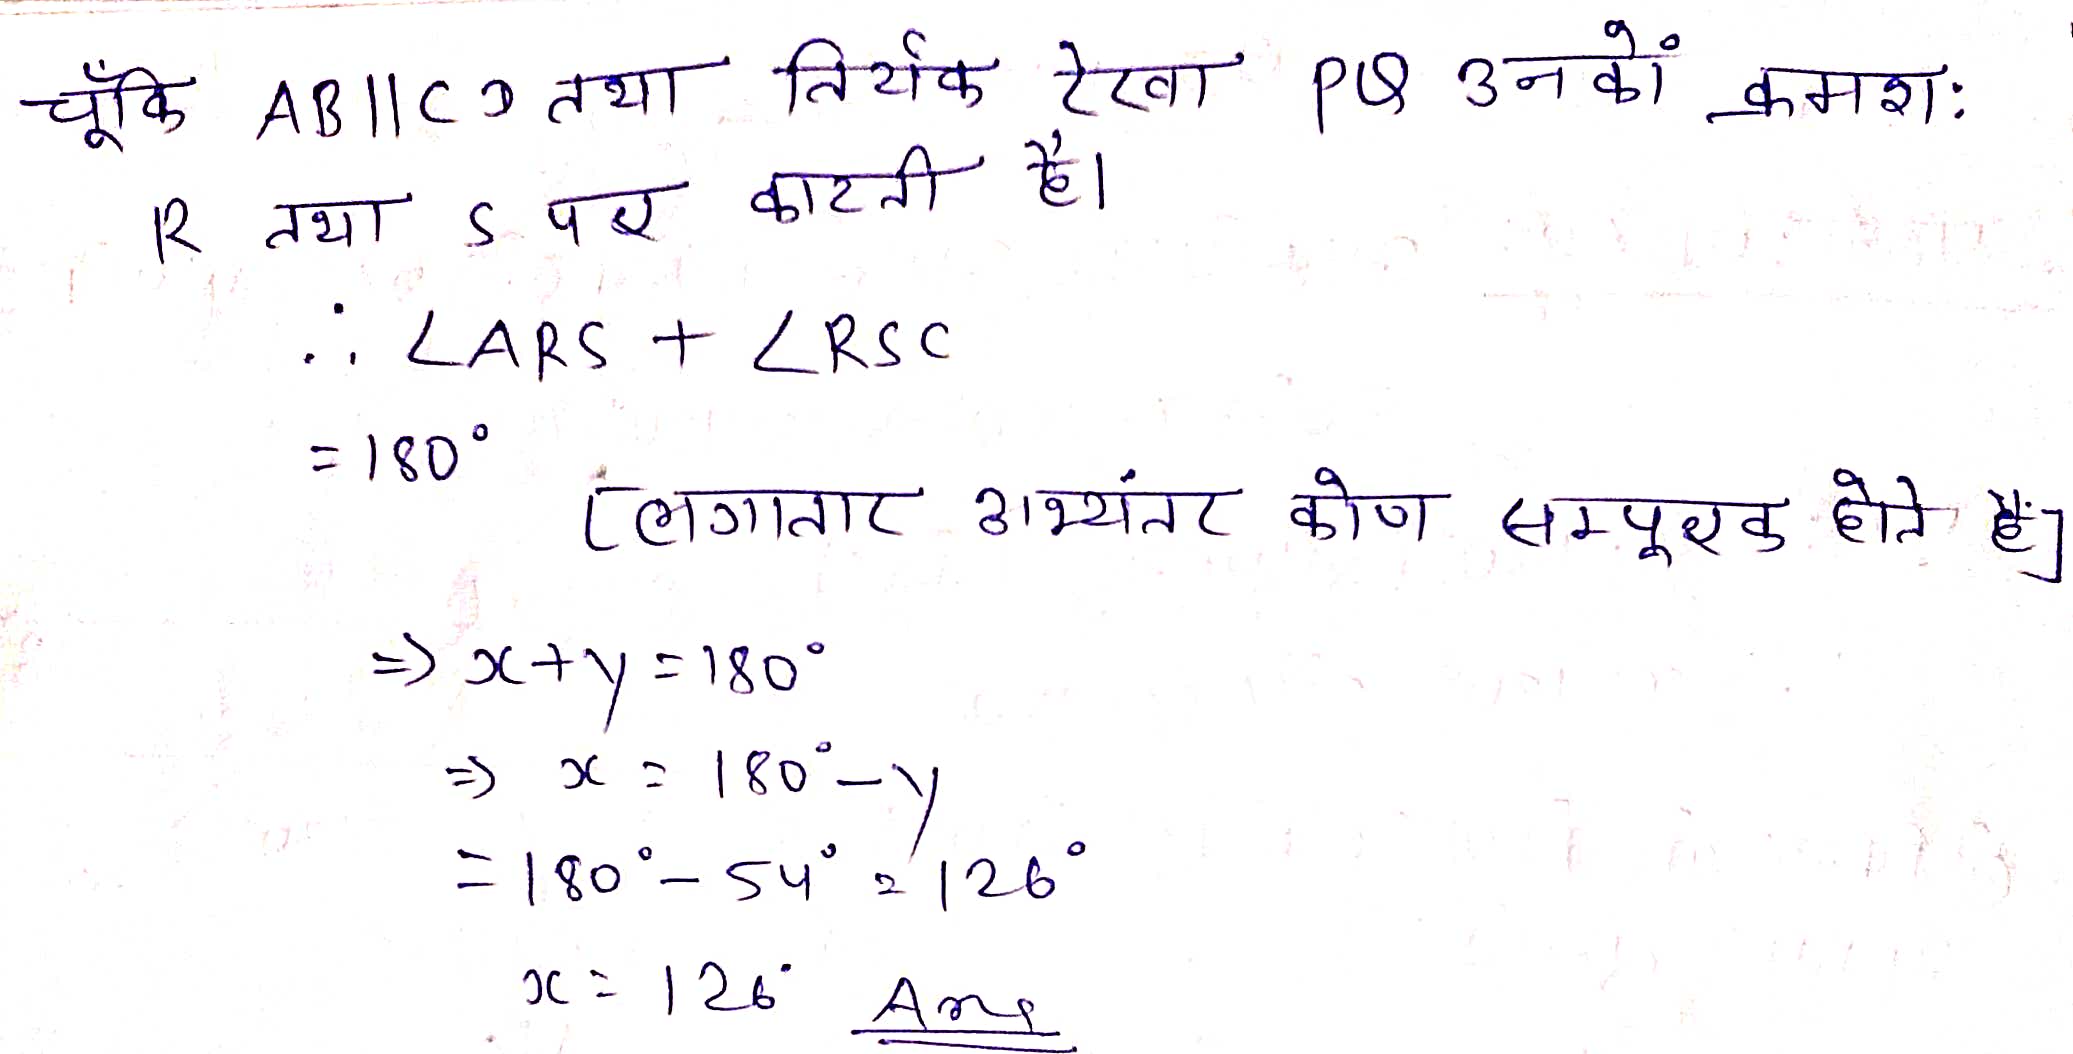 चूँकि AB||CD तथा तिर्यक रेखा PQ उनकों क्रमश:
R तथा S पर काटती है।
∴ ∠ARS + ∠RSC
= 180°
[लगातार अभ्यंतर कोण सम्पूरक होते हैं]
⇒ x+y = 180°
⇒ x = 180° - y
= 180° - 54° = 126°
x = 126° Ans